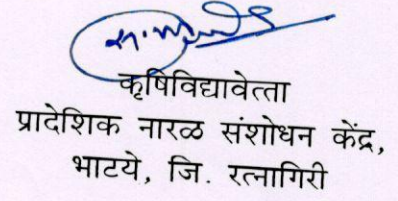 कृषिविद्यावेत्ता
प्रादेशिक नारळ संशोधन केंद्र,
भाटये, जि. रत्नागिरी